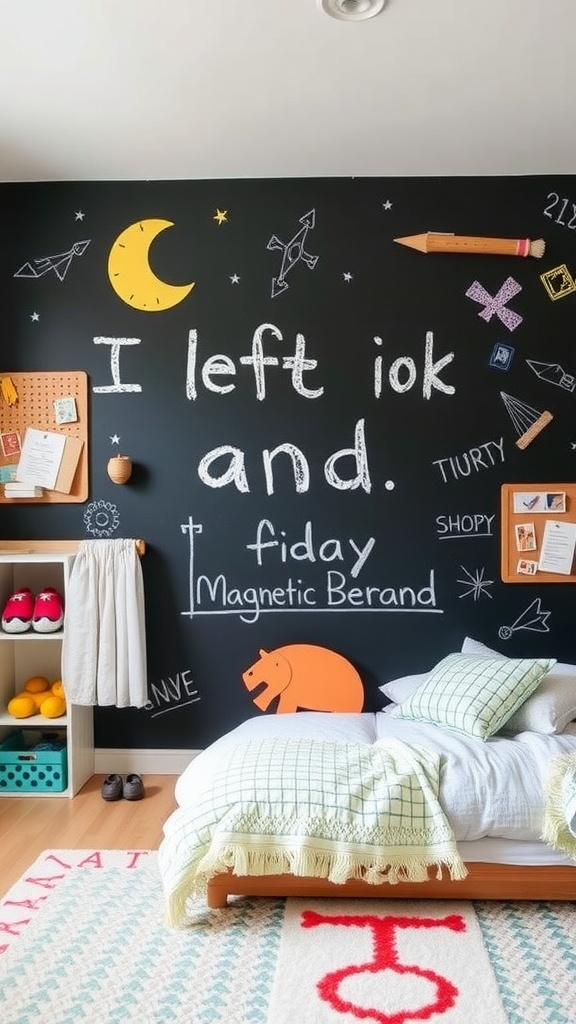 I left iok
and.
fiday
Magnetic Berand
TIURTY
SHOPY